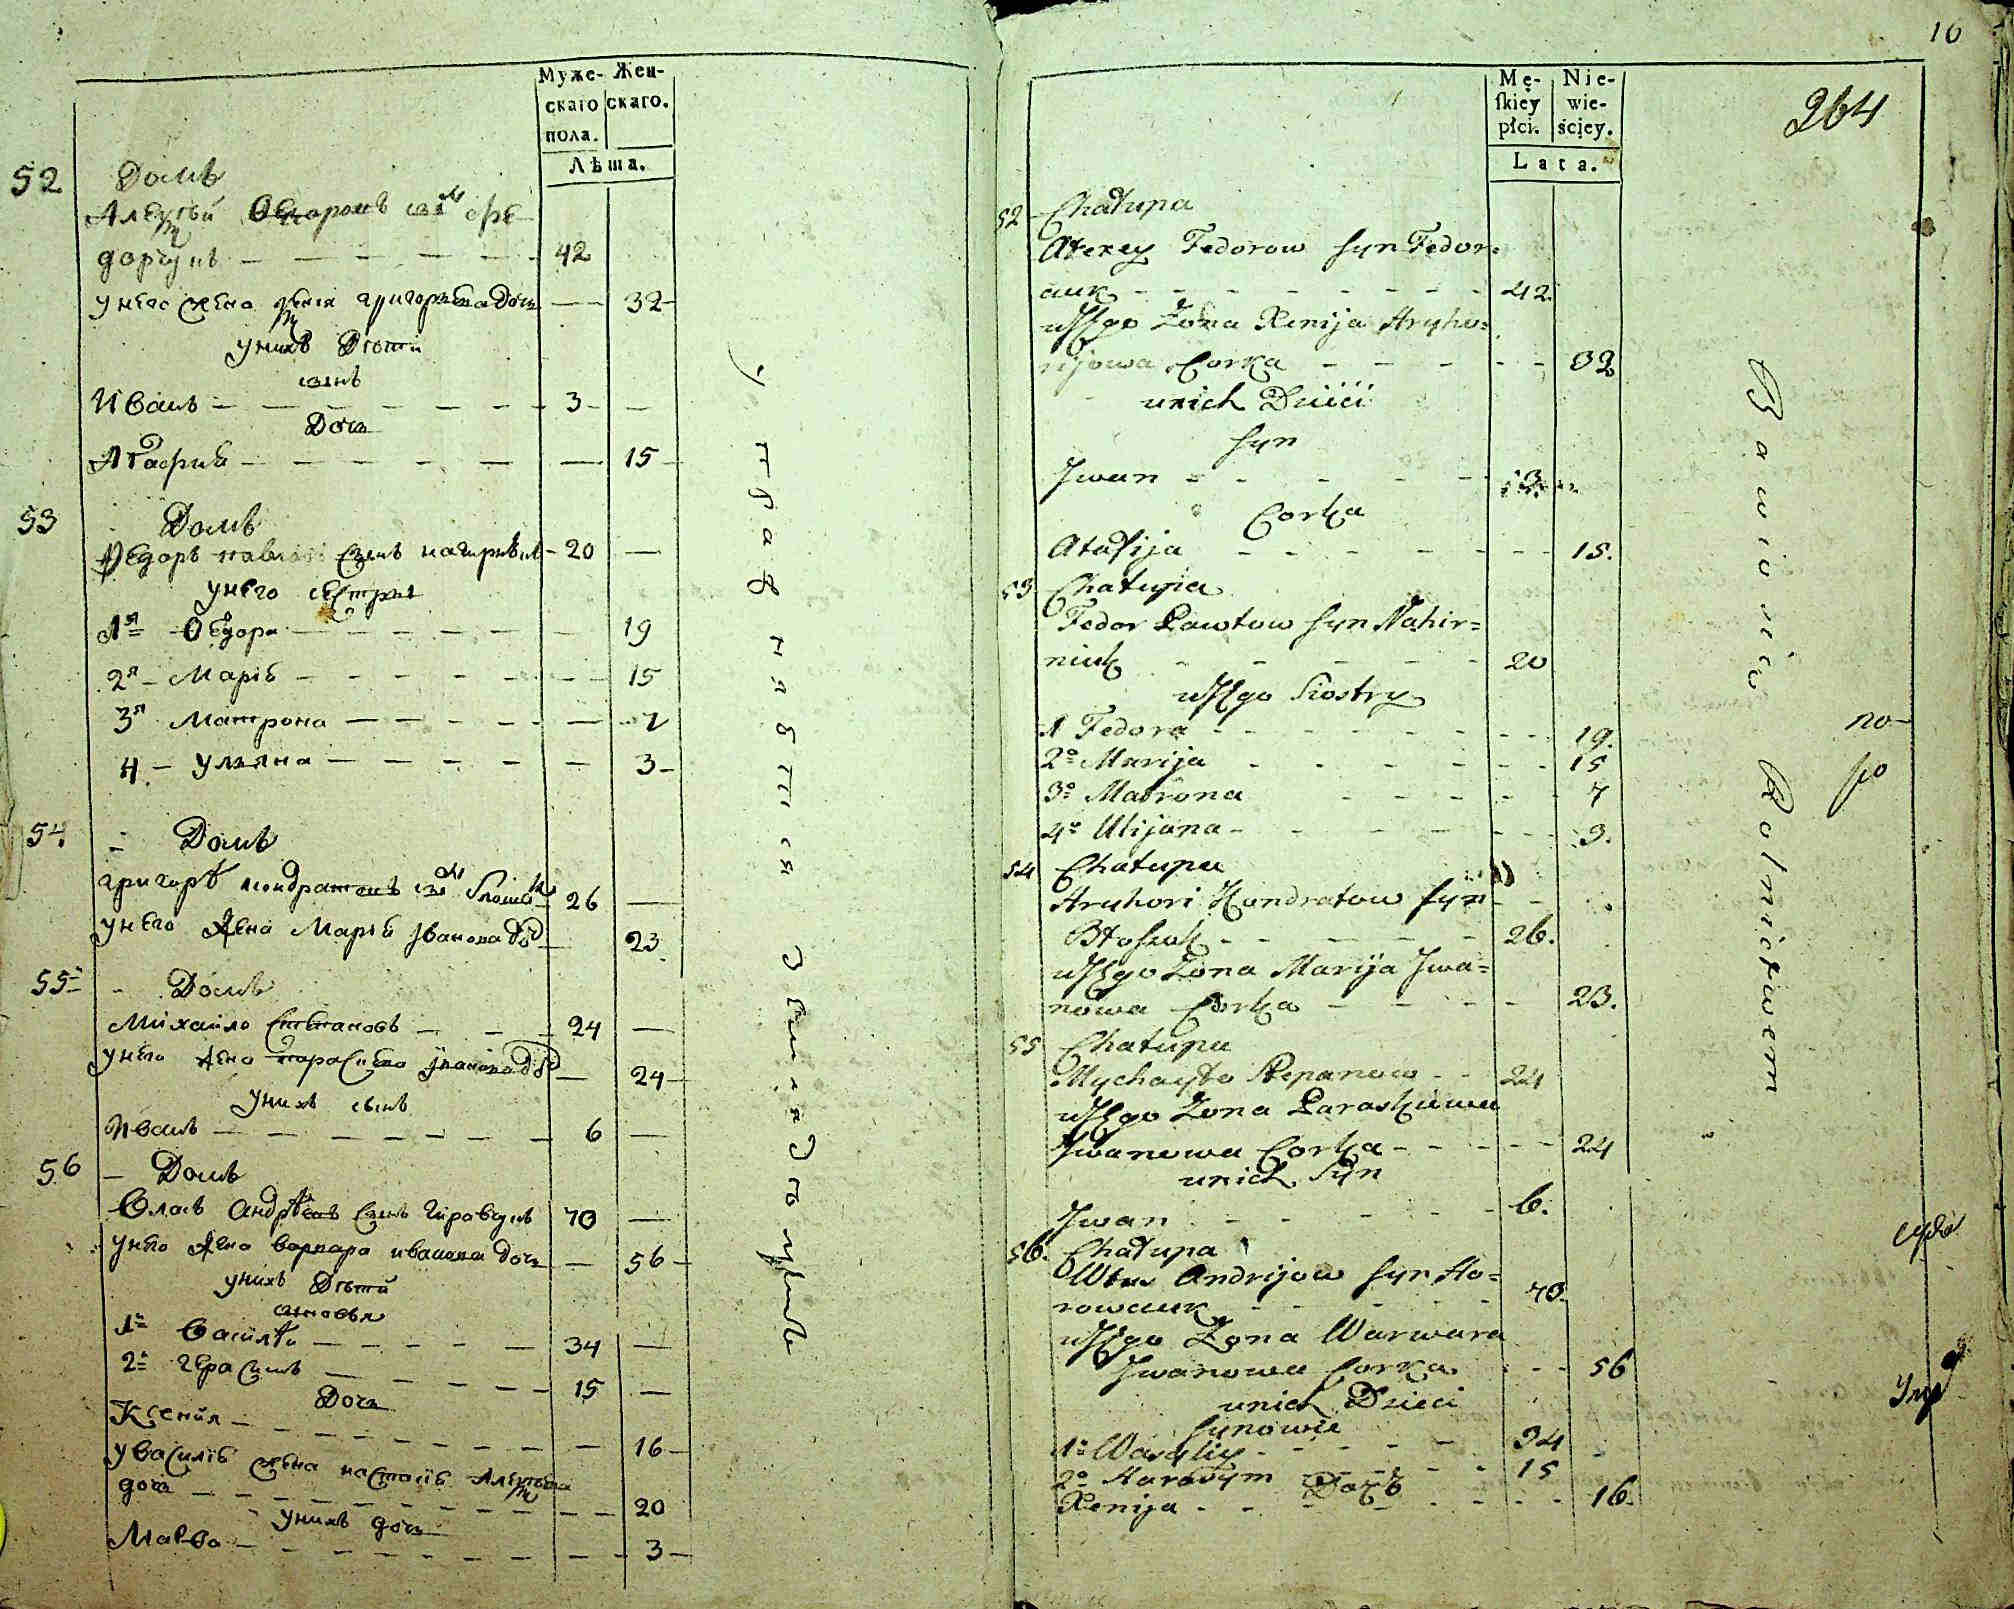 Муже-
скаго
пола.
Жен-
скаго.
Лѣта.
52
Домъ
Алексѣй Ѳедоровъ сынъ Фе-
дорчукъ - - - - - - 42
унего жена Ксенія григорьева дочь - 32
унихъ Дѣти
сынъ
Иванъ - - - - - - 3 -
Дочь
Агафія - - - - - - 15
53
Домъ
Ѳедоръ павловъ Сынъ нагирнѣ - 20 -
унего сестры
1я Ѳедора - - - - - 19
2я - Маріѣ - - - - - 15
3я Матрона - - - - - 7
4 - уляна - - - - - 3 -
54.
- Домъ
григорѣ кондратовъ сынъ 26 -
унего жена Марія Иванова доч - 23.
55
- Домъ
Михайло Степановъ - - - 24 -
унего жена параскева Иванова доч - 24 -
унихъ сынъ
Иванъ - - - - - - 6 -
56
- Домъ
Власъ Андрѣевъ Сынъ 70 -
унего жена варвара иванова дочь - 56 -
унихъ Дѣти
сыновья
1й Василѣй - - - - - 34 -
2й герасимъ - - - - - 15 -
Дочь
Ксенія - - - - - - 16 -
у Василіѣ жена настасіѣ Алексѣева
дочь - - - - - - 20
унихъ дочь
Мавра - - - - - - 3 -
16
264
Mę-
ſkiey
płci.
Nie-
wie-
ściey.
Lata.
52 Chałupa
Alexey Fedorow syn Fedor=
cuk - - - - - - 42.
u Jego Zona Xenija Hryho=
rijowa Corka - - - - 32
unich Dzieci
syn
Jwan - - - - - 3
Corka
Atafija - - - - - - 15.
53 Chałupa
Fedor Pawłow syn Nahir=
niuk - - - - - 20
u Jego Siostry
1 Fedora - - - - - 19.
2o Marija - - - - - 15
3o Matrona - - - - 7
4o Ulijana - - - - - 3.
54 Chałupa
Hryhori Kundratow syn
- - - - - 26.
u Jego Zona Marija Jwa=
nowa Corka - - - - 23.
55 Chałupa
Mychayło Stepanow - - 24
u Jego Zona Paraskiewa
Jwanowa Corka - - - - 24
unich Syn
Jwan - - - - - 6.
56. Chałupa
Włas Andrijow syn Ho=
rowcuk - - - - - 70.
u Jego Zona Warwara
Jwanowa Corka - - 56
unich Dzieci
Synowie
1o Wasyliy - - - - - 34
2o Harasym - - - - 15
Дочъ
Xenija - - - - - - 16.
Bawią się
Rolnictwem
по